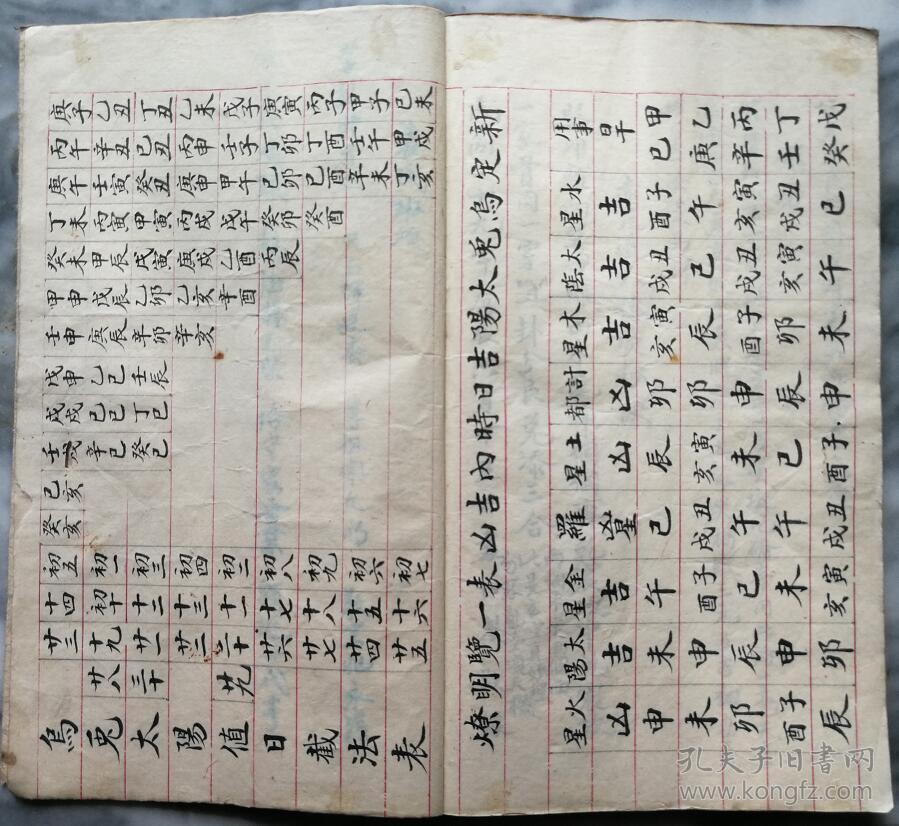 新定烏兎太陽吉日時內吉凶表一覽明燎
用事 水星 太蔭 木星 計都 土星 羅 金星 太陽 火星
吉 吉 吉 凶 凶 吉 吉 凶
甲己 子酉 丑戌 寅亥 卯 辰 巳 午 未 申
乙庚 午 巳 辰 卯 寅亥 丑戌 子酉 申 未
丙辛 寅亥 丑戌 子酉 申 未 午 巳 辰 卯
丁壬 丑戌 寅亥 卯 辰 巳 午 未 申 子酉
戊癸 巳 午 未 申 子酉 丑戌 寅亥 卯 辰
庚子 乙丑 丁丑 乙未 戊子 庚寅 丙子 甲子 己未
丙午 辛丑 己丑 丙申 壬子 丁卯 丁酉 壬午 甲戌
庚午 壬寅 癸丑 庚申 甲午 己卯 己酉 辛未 丁亥
丁未 丙寅 甲寅 丙戌 戊午 癸卯 癸酉
癸未 甲辰 戊寅 庚戌 乙酉 丙辰
甲申 戊辰 乙卯 乙亥 辛酉
壬申 庚辰 辛卯 辛亥
戊申 乙巳 壬辰
戊戌 己巳 丁巳
壬戌 辛巳 癸巳
己亥
癸亥
初五 初一 初三 初四 初二 初八 初九 初六 初七
十四 初十 十二 十三 十一 十七 十八 十五 十六
廿三 十九 廿一 廿二 二十 廿六 廿七 廿四 廿五
廿八 三十 廿九
烏兎太陽值日截法表
孔夫子旧书网
www.kongfz.com